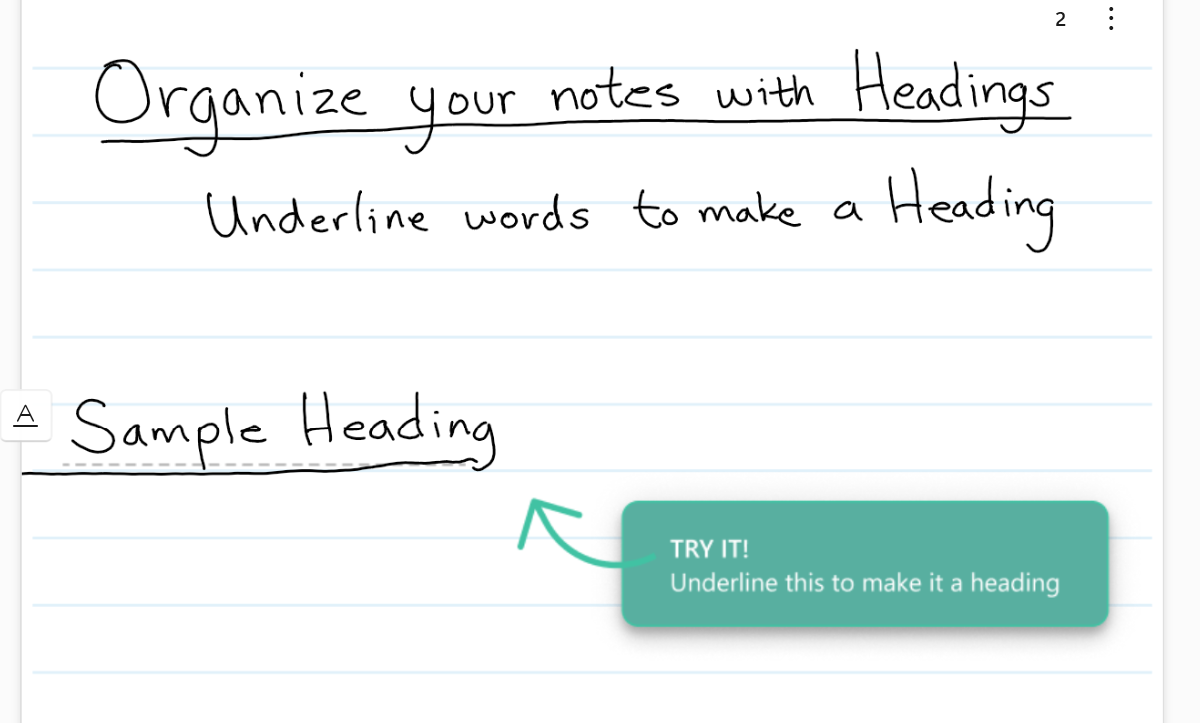 2
Organize your notes with Headings
Underline words to make a Heading
A
Sample Heading
TRY IT!
Underline this to make it a heading